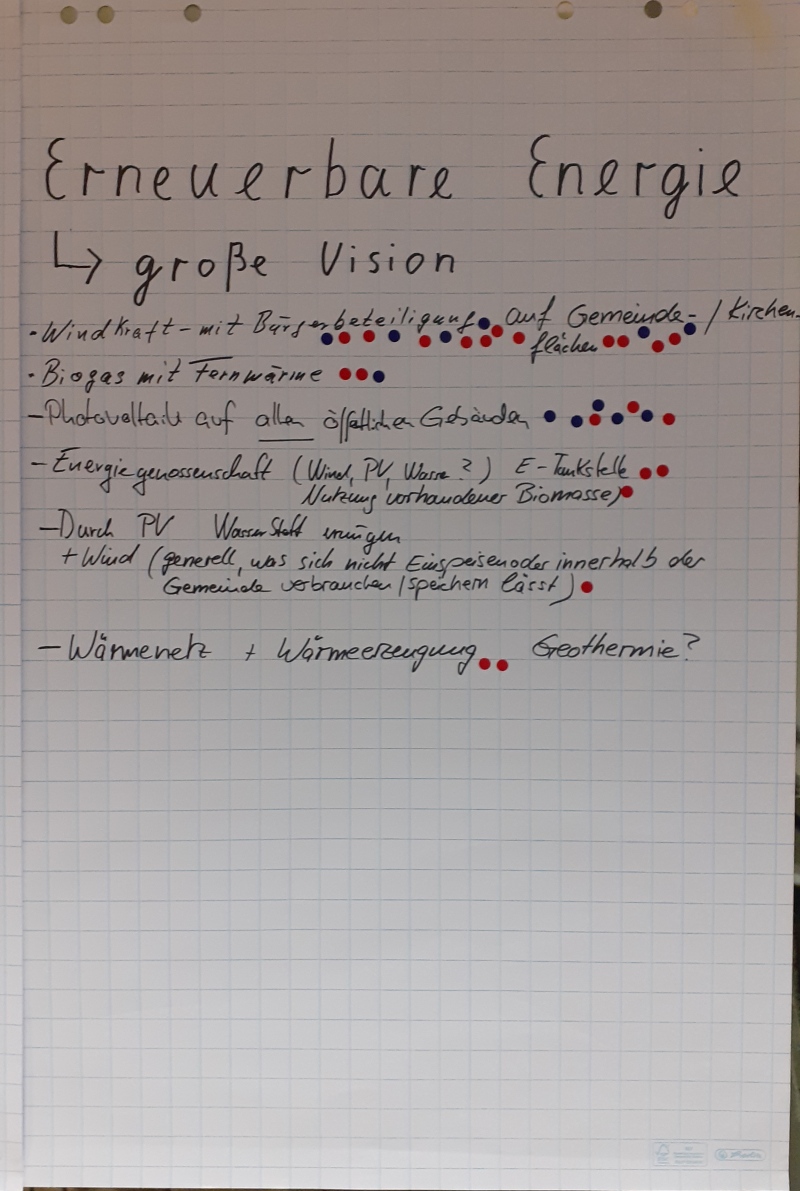 Erneuerbare Energie
↳ große Vision
· Windkraft - mit Bürgerbeteiligung auf Gemeinde- / Kirchen-
flächen
· Biogas mit Fernwärme
- Photovoltaik auf allen öffentlichen Gebäuden
- Energiegenossenschaft (Wind, PV, Wasser?) E-Tankstelle
Nutzung vorhandener Biomasse)
- Durch PV Wasserstoff erzeugen
+ Wind (generell, was sich nicht Einspeisen oder innerhalb der
Gemeinde verbrauchen / speichern lässt)
- Wärmenetz + Wärmeerzeugung Geothermie?